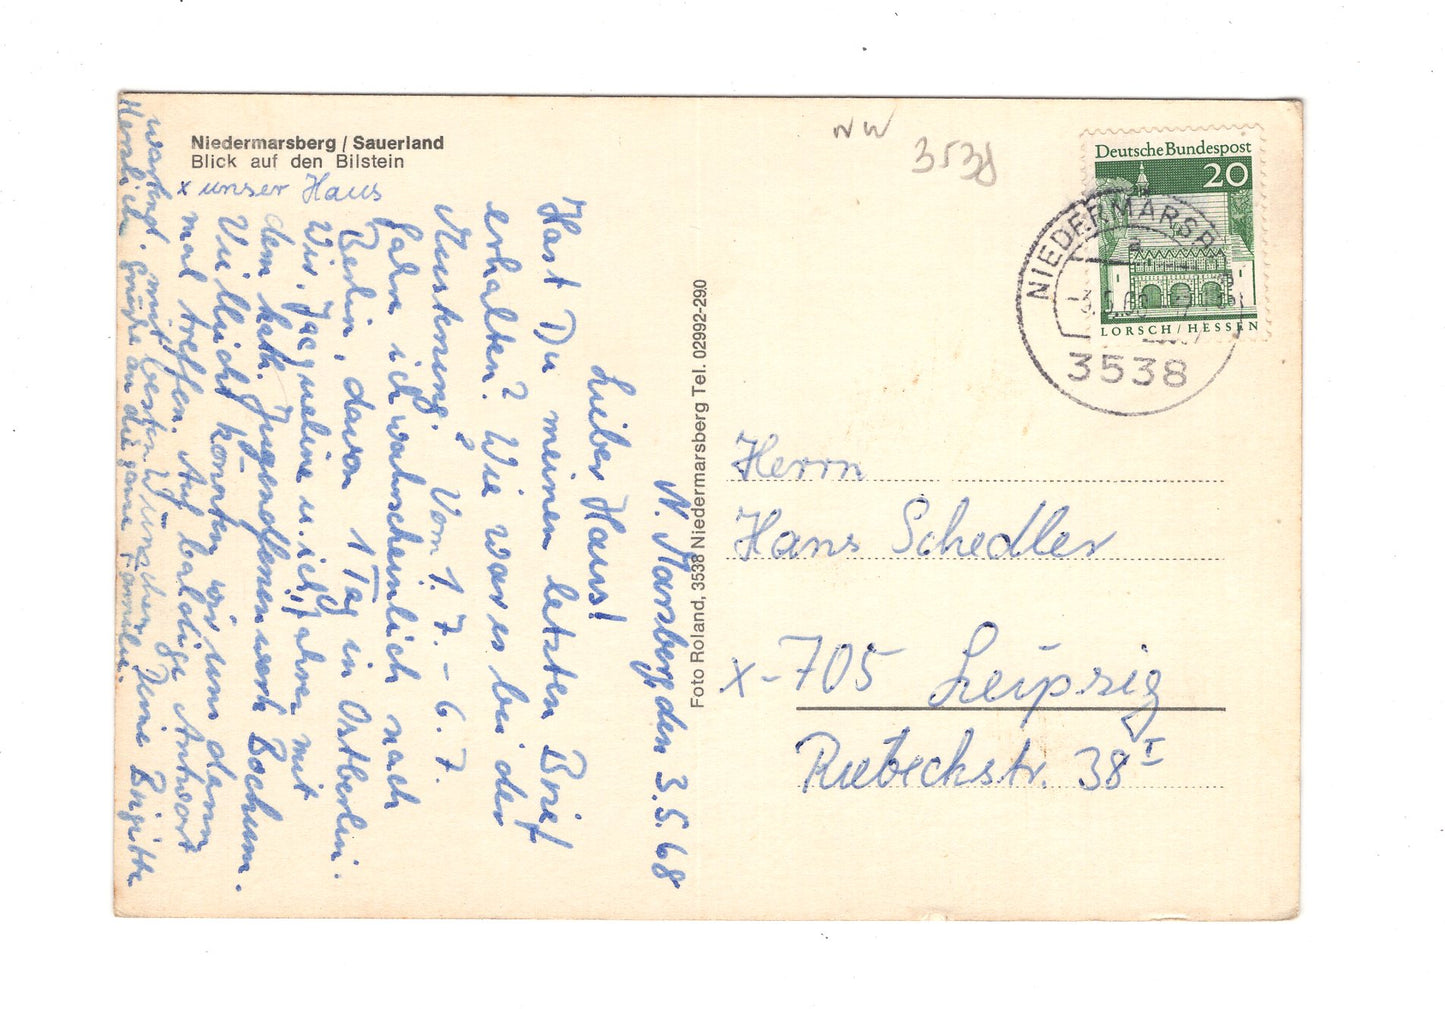 Niedermarsberg / Sauerland
Blick auf den Bilstein
x unser Haus
N. Marsberg, den 3.5.68
Lieber Hans!
Hast Du meinen letzten Brief
erhalten? Wie war es bei der
Musterung? Vom 1.7. - 6.7.
fahre ich wahrscheinlich nach
Berlin, davon 1 Tag in Ostberlin.
Wir, Jacqueline u. ich, fahren mit
dem kath. Jugendferienwerk Bochum.
Vielleicht könnten wir uns dann
mal treffen. Auf baldige Antwort
wartend, mit besten Wünschen Deine Brigitte
Herzliche Grüße an die ganze Familie.
Foto Roland, 3538 Niedermarsberg Tel. 02992-290
NW
3538
Deutsche Bundespost
20
LORSCH / HESSEN
NIEDERMARSB
a
-3.5.68
3538
Herrn
Hans Schedler
x-705 Leipzig
Riebeckstr. 38 I